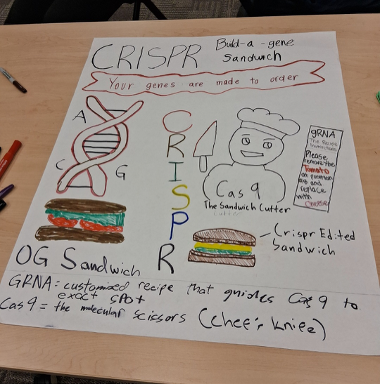 CRISPR
Build-a-gene
Sandwich
Your genes are made to order
A
C
G
CRISPR
Cas 9
The Sandwich Cutter
gRNA
Please
remove the
tomato
and
replace
with
cheese
OG Sandwich
Crispr Edited
Sandwich
GRNA: customized recipe that guides Cas 9 to
exact spot
Cas 9 = the molecular scissors (chef's knife)